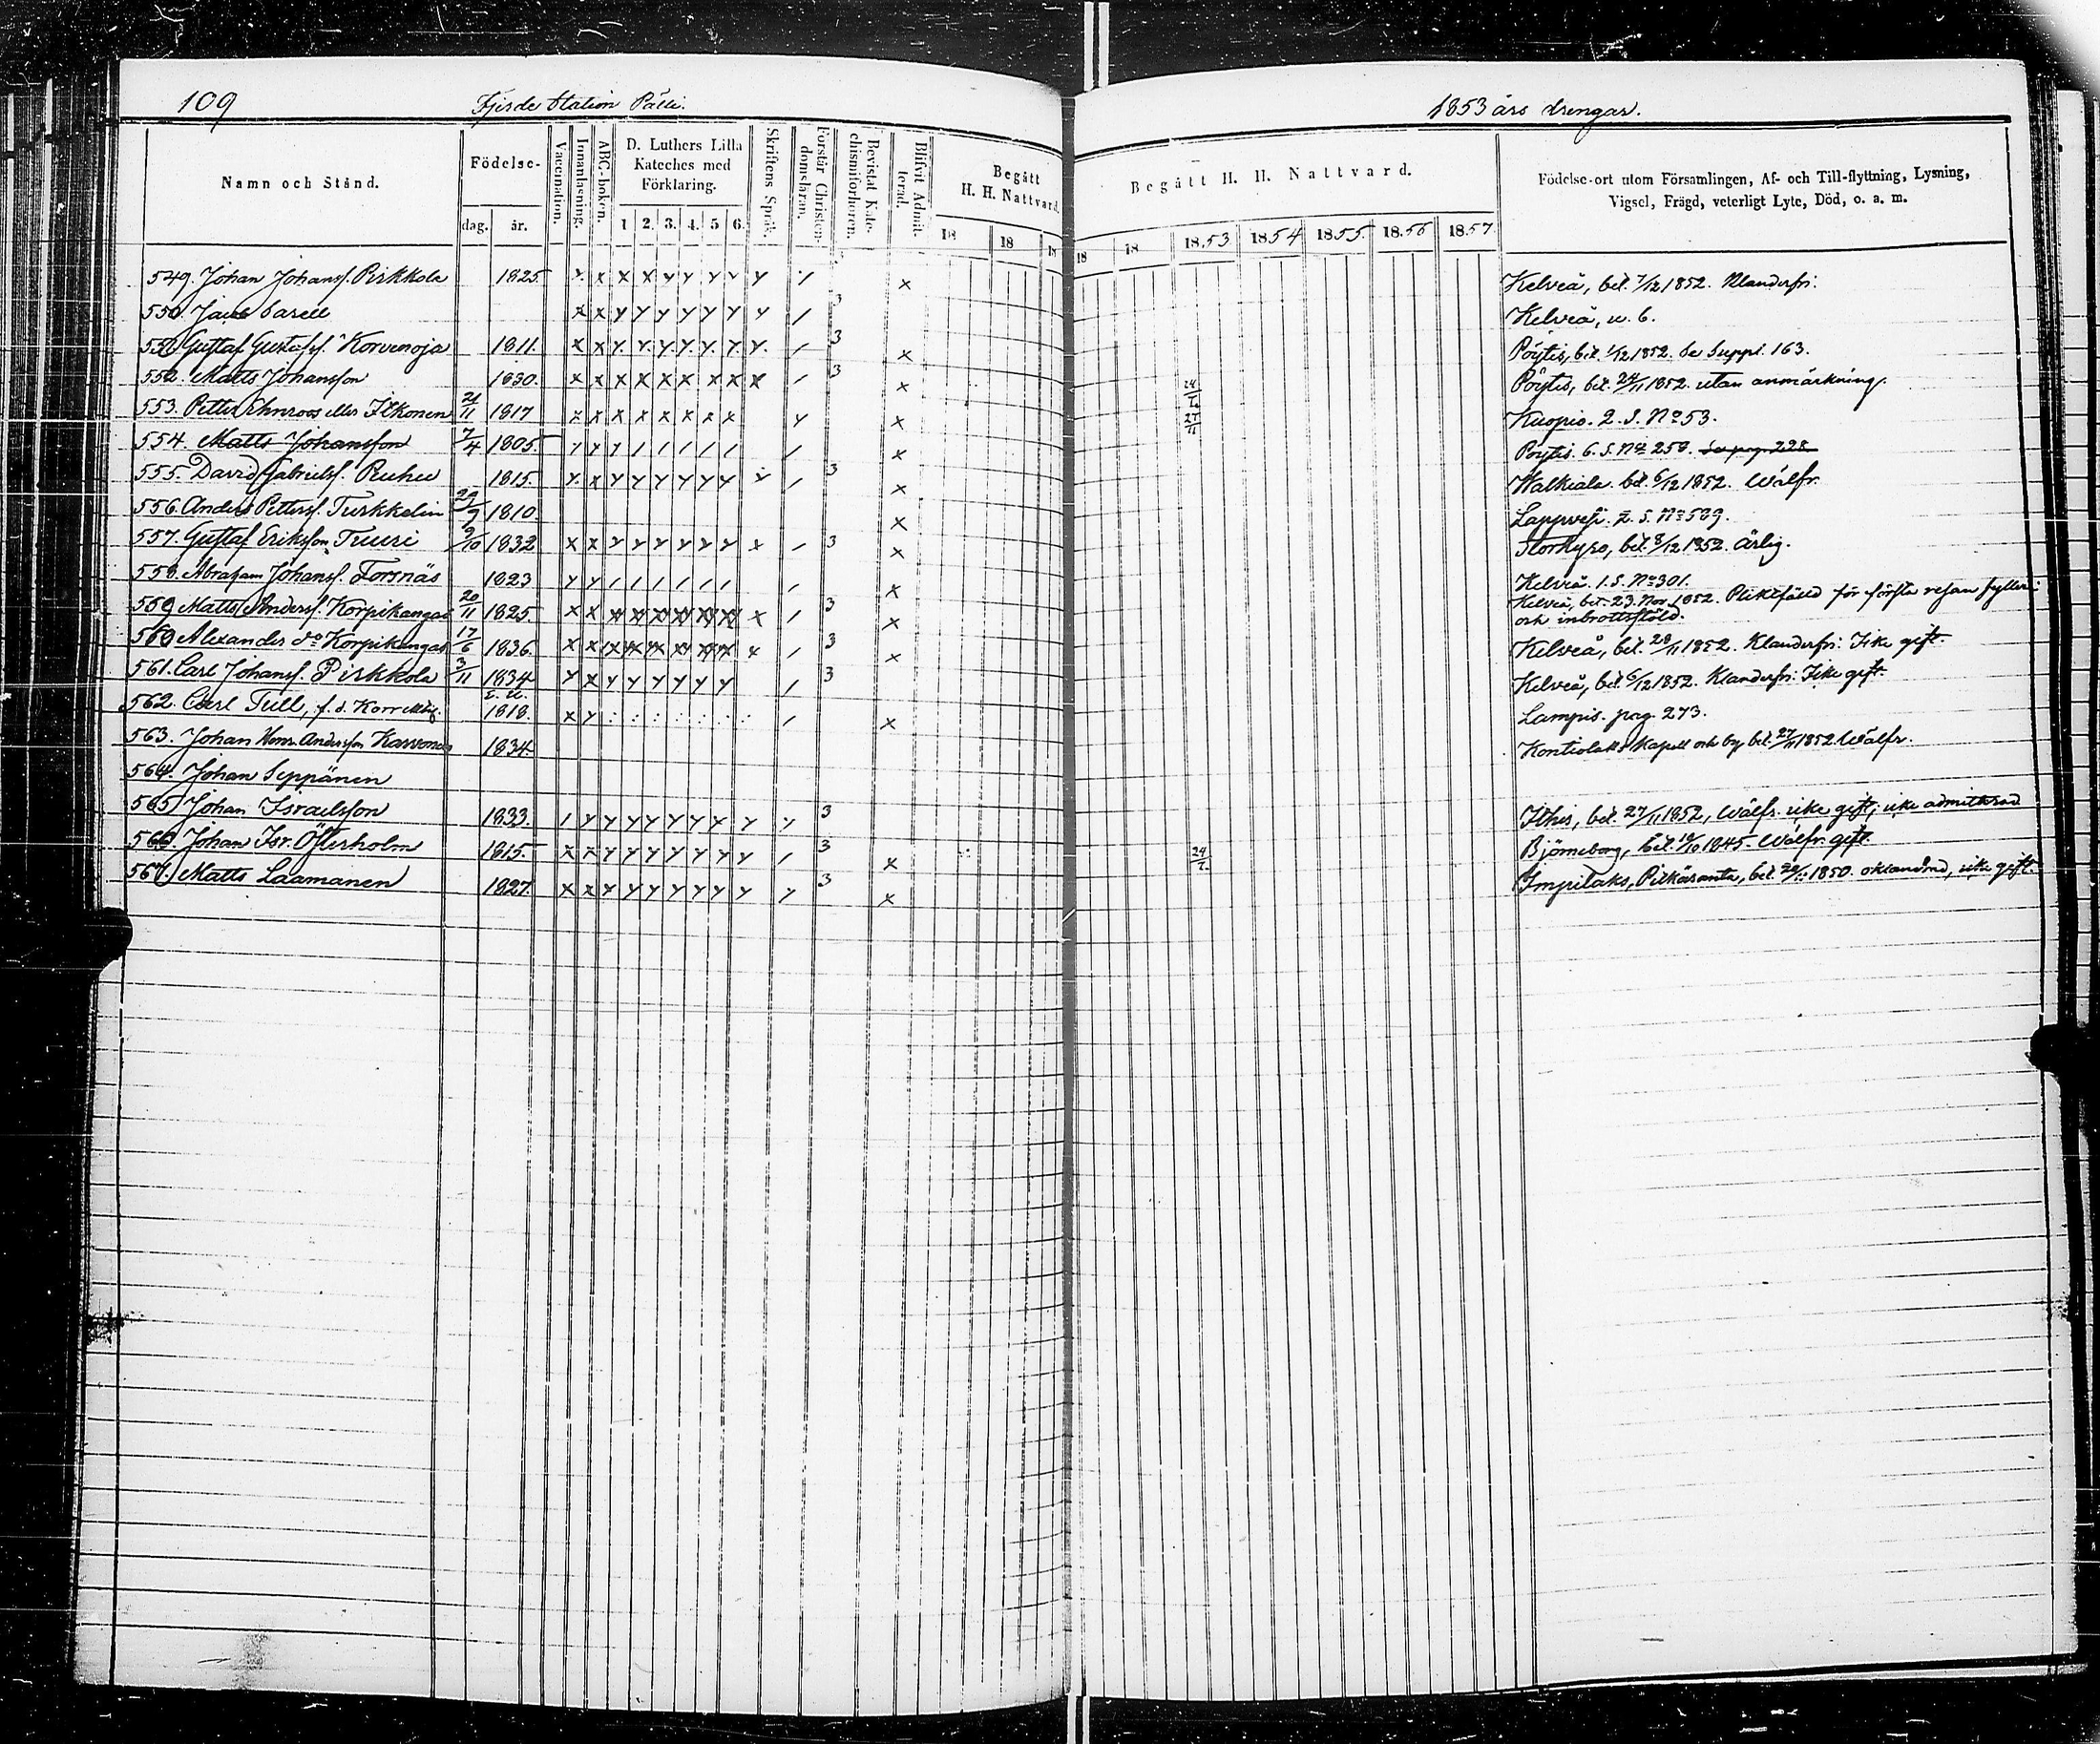 109 Fjerde Station Pälli. 1853 års drengar.
Namn och Stånd. Födelse- dag. år. Vaccination. Innanläsning. ABC-boken. D. Luthers Lilla Kateches med Förklaring. 1 2. 3. 4. 5 6. Skriftens Språk. Förstår Christendomsläran. Bevistat Katechismiförhören. Blifvit Admitterad. Begått H. H. Nattvard. 18 18 18
Begått H. H. Nattvard. 18 18 1853 1854 1855. 1856 1857 Födelse-ort utom Församlingen, Af- och Till-flyttning, Lysning, Vigsel, Frägd, veterligt Lyte, Död, o. a. m.
549. Johan Johanss. Pirkkola 1825 Kelveå, bet. 7/12 1852. Klanderfri.
550. Jacob Sarell 3 Kelveå, u. b.
551 Gustaf Gustafss. Korvenoja 1811. 3 Pöytis, bet. 1/12 1852. Se Suppl. 163.
552. Matts Johansson 1830. 3 Pöytis, bet. 24/11 1852. utan anmärkning.
553. Petter Ehnroos eller Ilkonen 21/11 1817 27/11 Kuopio. 2. S. No 53.
554. Matts Johansson 7/4 1805. Pöytis. 6. S. No 259. Se pag. 228
555. David Gabrielss. Ruhu 1815. 3 Walkiala. bet. 6/12 1852. Wälfr.
556. Anders Petterss. Turkkelin 29/9 1810. Lappvesi. 2. S. No 589.
557. Gustaf Eriksson Truuri 9/10 1832 3 Storkyro, bet. 8/12 1852. Ärlig.
558. Abraham Johanss. Forsnäs 1823 Kelveå. 1. S. No 301.
559 Matts Anderss. Korpikangas 20/11 1825. 3 Kelveå, bet. 23. Nov. 1852. Pliktfälld för första resan fylleri
och inbrottsstöld.
560 Alexander do Korpikangas 17/6 1836. 3 Kelveå, bet. 28/11 1852. Klanderfri. Icke gift.
561. Carl Johanss. Pirkkola 3/11 1834 3 Kelveå, bet. 6/12 1852. Klanderfri. Icke gift.
562. Carl Tull, f. d. 1818. Lampis. pag. 273.
563. Johan Henr. Andersson Karvonen 1834. Kontiolaks Kapell och by bet. 27/11 1852 Wälfr.
564. Johan Seppänen
565 Johan Israelsson 1833. 3 Ithis, bet. 27/11 1852, Wälfr. icke gift, icke admitterad
566. Johan Isr. Österholm 1815. 3 Björneborg, bet. 10/10 1845. Wälfr. gift.
567. Matts Laamanen 1827. 3 Impilaks, Pitkäranta, bet. 1850. oklandrad, icke gift.